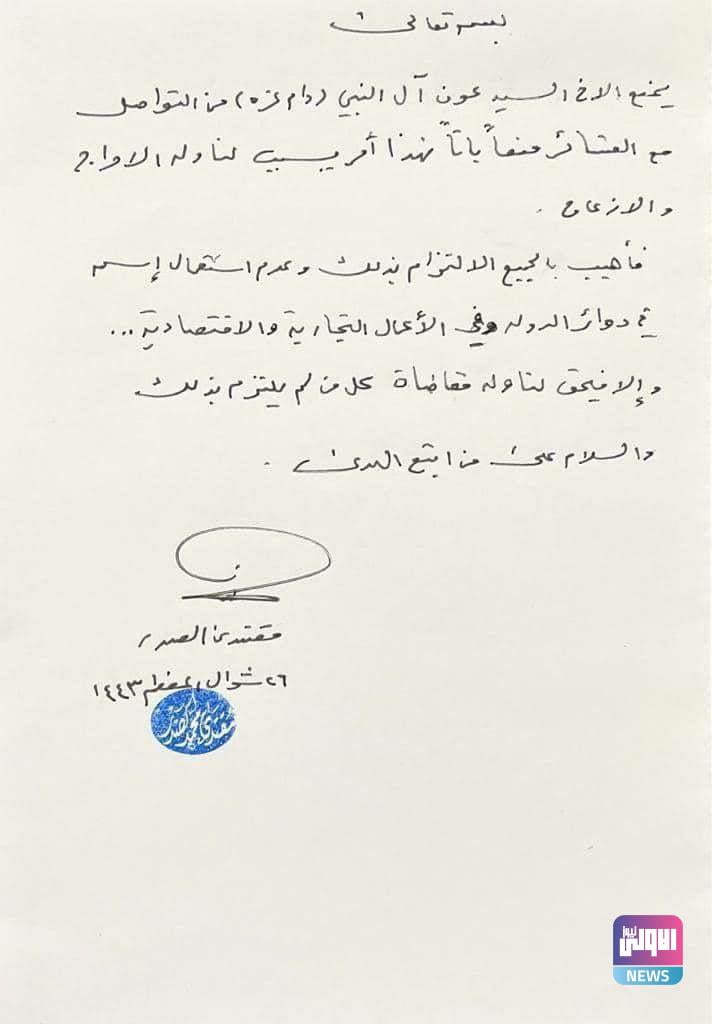 بسمه تعالى
يمنع الاخ السيد عون آل النبي (دام عزه) من التواصل
مع العشائر منعاً باتاً فهذا أمر يسبب لنا وله الاحراج
والازعاج .
فأهيب بالجميع الالتزام بذلك وعدم استعمال إسمه
في دوائر الدوله وفي الأعمال التجارية والاقتصادية ...
وإلا فيحق لنا وله مقاضاة كل من لم يلتزم بذلك
والسلام على من اتبع الهدى .
مقتدى الصدر
٢٦ شوال المعظم ١٤٤٣
مقتدى محمد الصدر
الاولى نيوز
NEWS